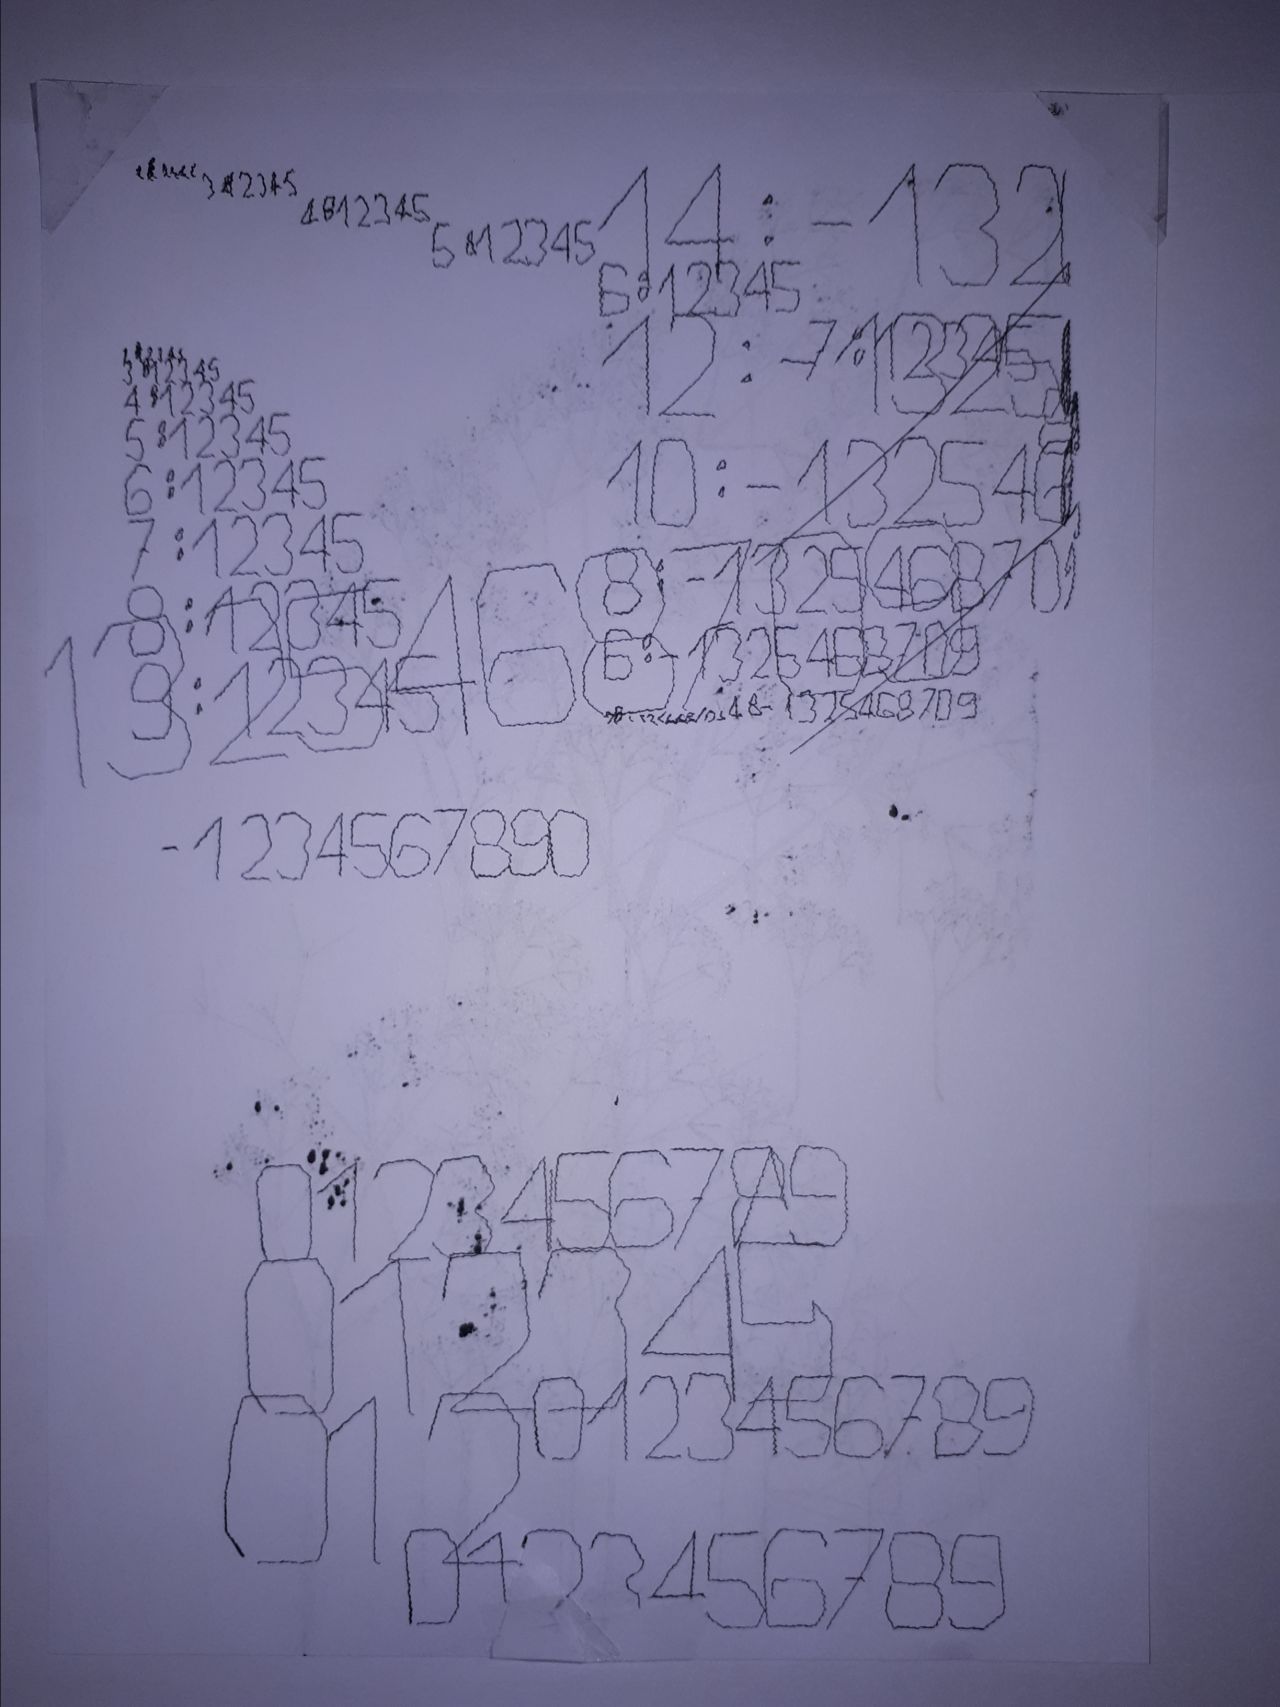 3:12345
4:12345
5:12345
14:-132
6:12345
12:-1325
7:12345
3:12345
4:12345
5:12345
10:-132546
6:12345
7:12345
8:-1325468701
8:12345
6:-1325468709
9:12345
13254687
4:-1325468709
-1234567890
0123456789
012345
0123456789
012
0123456789